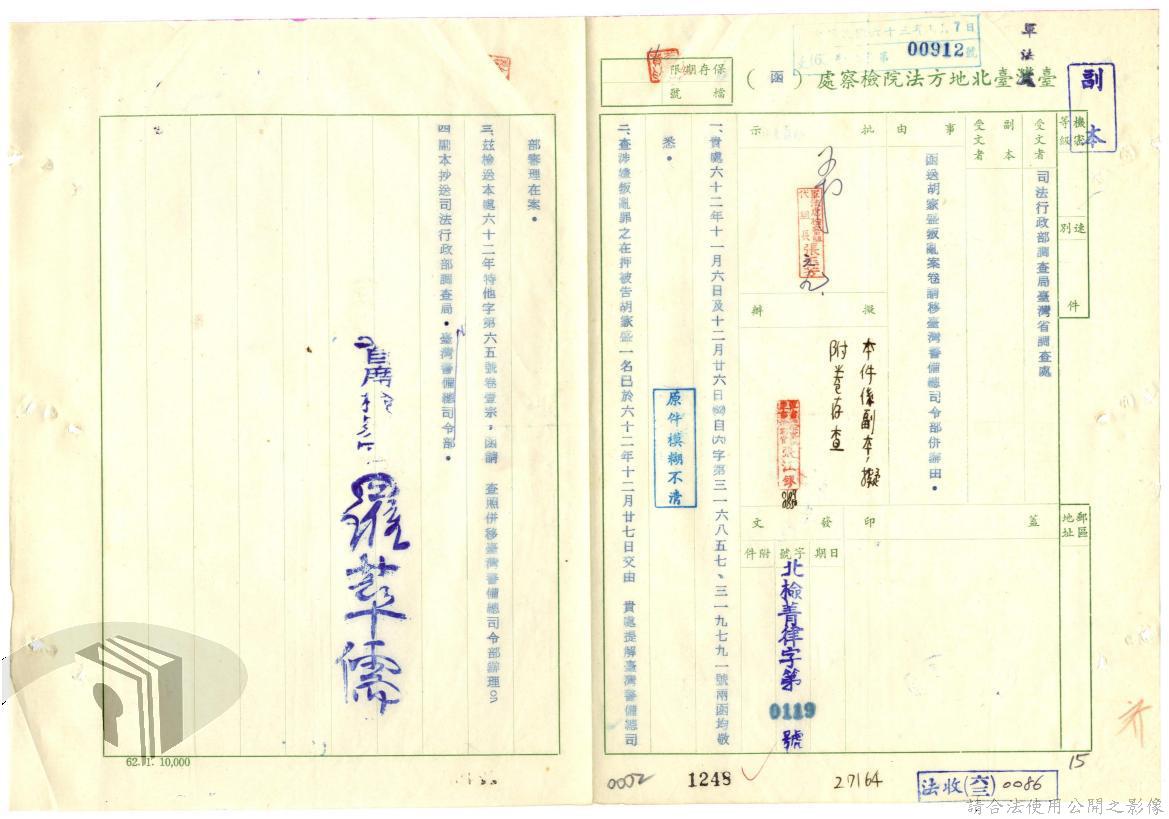 副本
軍法處
00912號
保存期限
檔號
臺灣臺北地方法院檢察處（函）
機密等級
速別
件
郵區地址
受文者
司法行政部調查局臺灣省調查處
副本受文者
事由
函送胡家盛叛亂案卷請移臺灣警備總司令部併辦由。
批示
擬辦
本件係副本，擬
附卷存查
蓋印
發文
日期
字號
附件
北檢菁律字第
0119
號
一、貴處六十二年十一月六日及十二月廿六日(62)自(六)字第三一六八五七、三一九七九一號兩函均敬
悉。
原件模糊不清
二、查涉嫌叛亂罪之在押被告胡家盛一名已於六十二年十二月廿七日交由　貴處提解臺灣警備總司
部審理在案。
三、茲檢送本處六十二年特他字第六五號卷壹宗，函請　查照併移臺灣警備總司令部辦理。
四、副本抄送司法行政部調查局。臺灣警備總司令部。
首席檢察官
羅萃儒
62.11. 10,000
0002
1248
27164
15
法收(六三)0086
請合法使用公開之影像